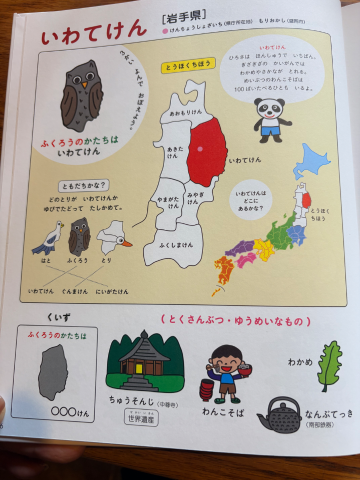 いわてけん
［岩手県］
けんちょうしょざいち（県庁所在地） もりおかし（盛岡市）
こえに だして よんで、おぼえよう。
ふくろうのかたちは
いわてけん
とうほくちほう
あおもりけん
あきたけん
いわてけん
やまがたけん
みやぎけん
ふくしまけん
いわてけん
ひろさは ほんしゅうで いちばん。
ぎざぎざの かいがんでは
わかめやさかなが とれる。
めいぶつのわんこそばは
100ぱいたべるひとも いるよ。
いわてけんは
どこに
あるかな？
とうほく
ちほう
ともだちかな？
どのとりが いわてけんか
ゆびでたどって たしかめて。
はと ふくろう とり
いわてけん ぐんまけん にいがたけん
くいず
ふくろうのかたちは
○○○けん
（とくさんぶつ・ゆうめいなもの）
ちゅうそんじ（中尊寺）
世界遺産
わんこそば
わかめ
なんぶてっき
（南部鉄器）